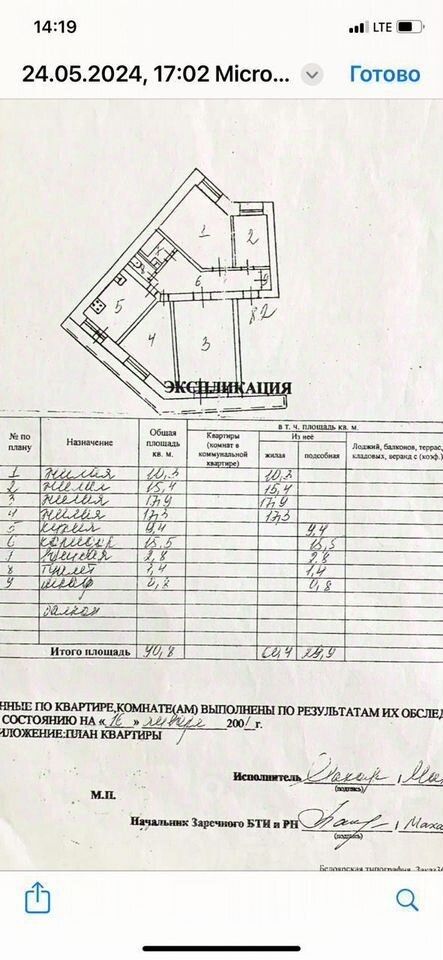 14:19 LTE
24.05.2024, 17:02 Micro... Готово
1
2
6
9
5
4
3
ЭКСПЛИКАЦИЯ
№ по плану Назначение Общая площадь кв. м. Квартиры (комнат в коммунальной квартире) в т. ч. площадь кв. м.
Из неё
жилая подсобная Лоджий, балконов, террас, кладовых, веранд с (коэф.)
1 жилая 10,3 10,3
2 жилая 15,4 15,4
3 жилая 17,9 17,9
4 жилая 17,3 17,3
5 кухня 9,4 9,4
6 коридор 15,5 15,5
2,8 2,8
8 туалет 1,4 1,4
9 шкаф 0,8
балкон
Итого площадь 90,8 29,9
ННЫЕ ПО КВАРТИРЕ,КОМНАТЕ(АМ) ВЫПОЛНЕНЫ ПО РЕЗУЛЬТАТАМ ИХ ОБСЛЕД
СОСТОЯНИЮ НА « 16 » января 2001 г.
ИЛОЖЕНИЕ:ПЛАН КВАРТИРЫ
Исполнитель
(подпись)
М.П.
Начальник Заречного БТИ и РН Маха
(подпись)
Белоярская типография. Заказ